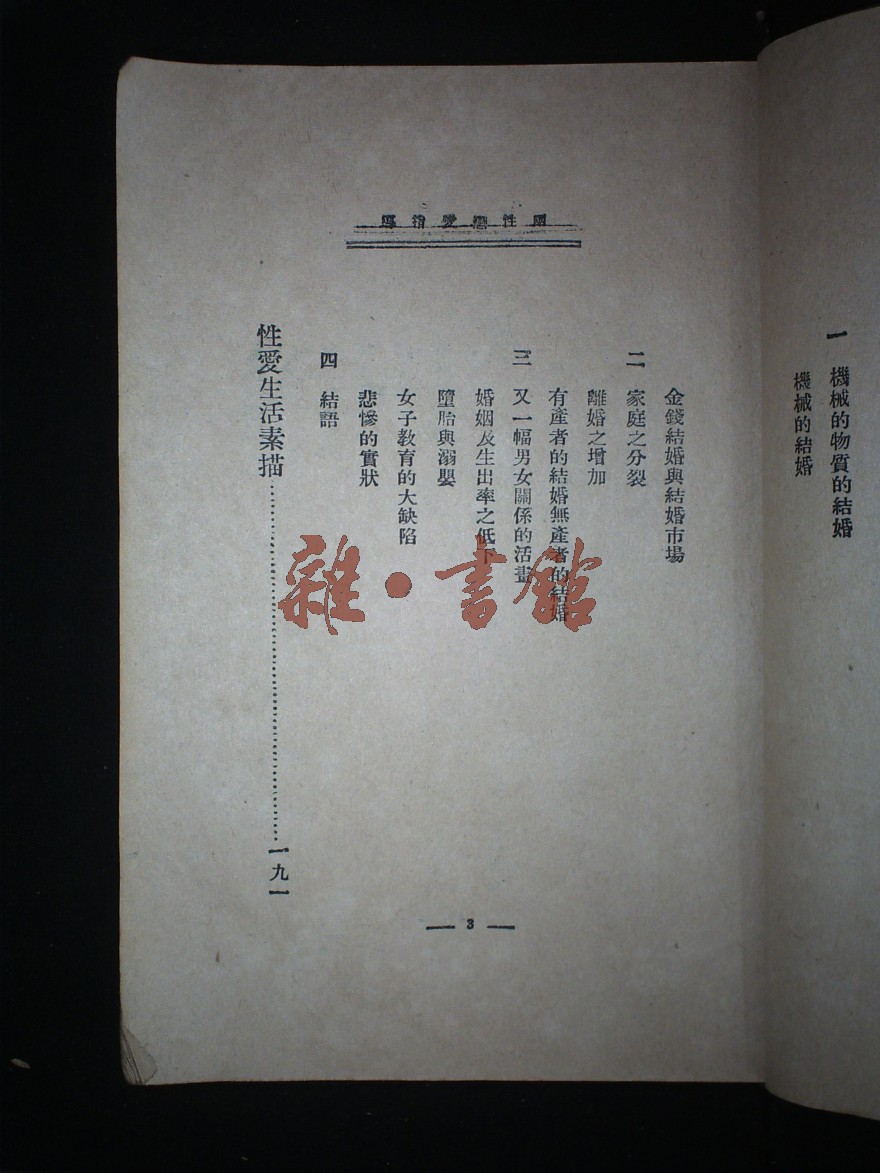 一 機械的物質的結婚
機械的結婚
兩性戀愛指導
金錢結婚與結婚市場
二 家庭之分裂
離婚之增加
有產者的結婚無產者的結婚
三 又一幅男女關係的活畫
婚姻及生出率之低下
墮胎與溺嬰
女子教育的大缺陷
悲慘的實狀
四 結語
性愛生活素描……一九一
3
雜·書館